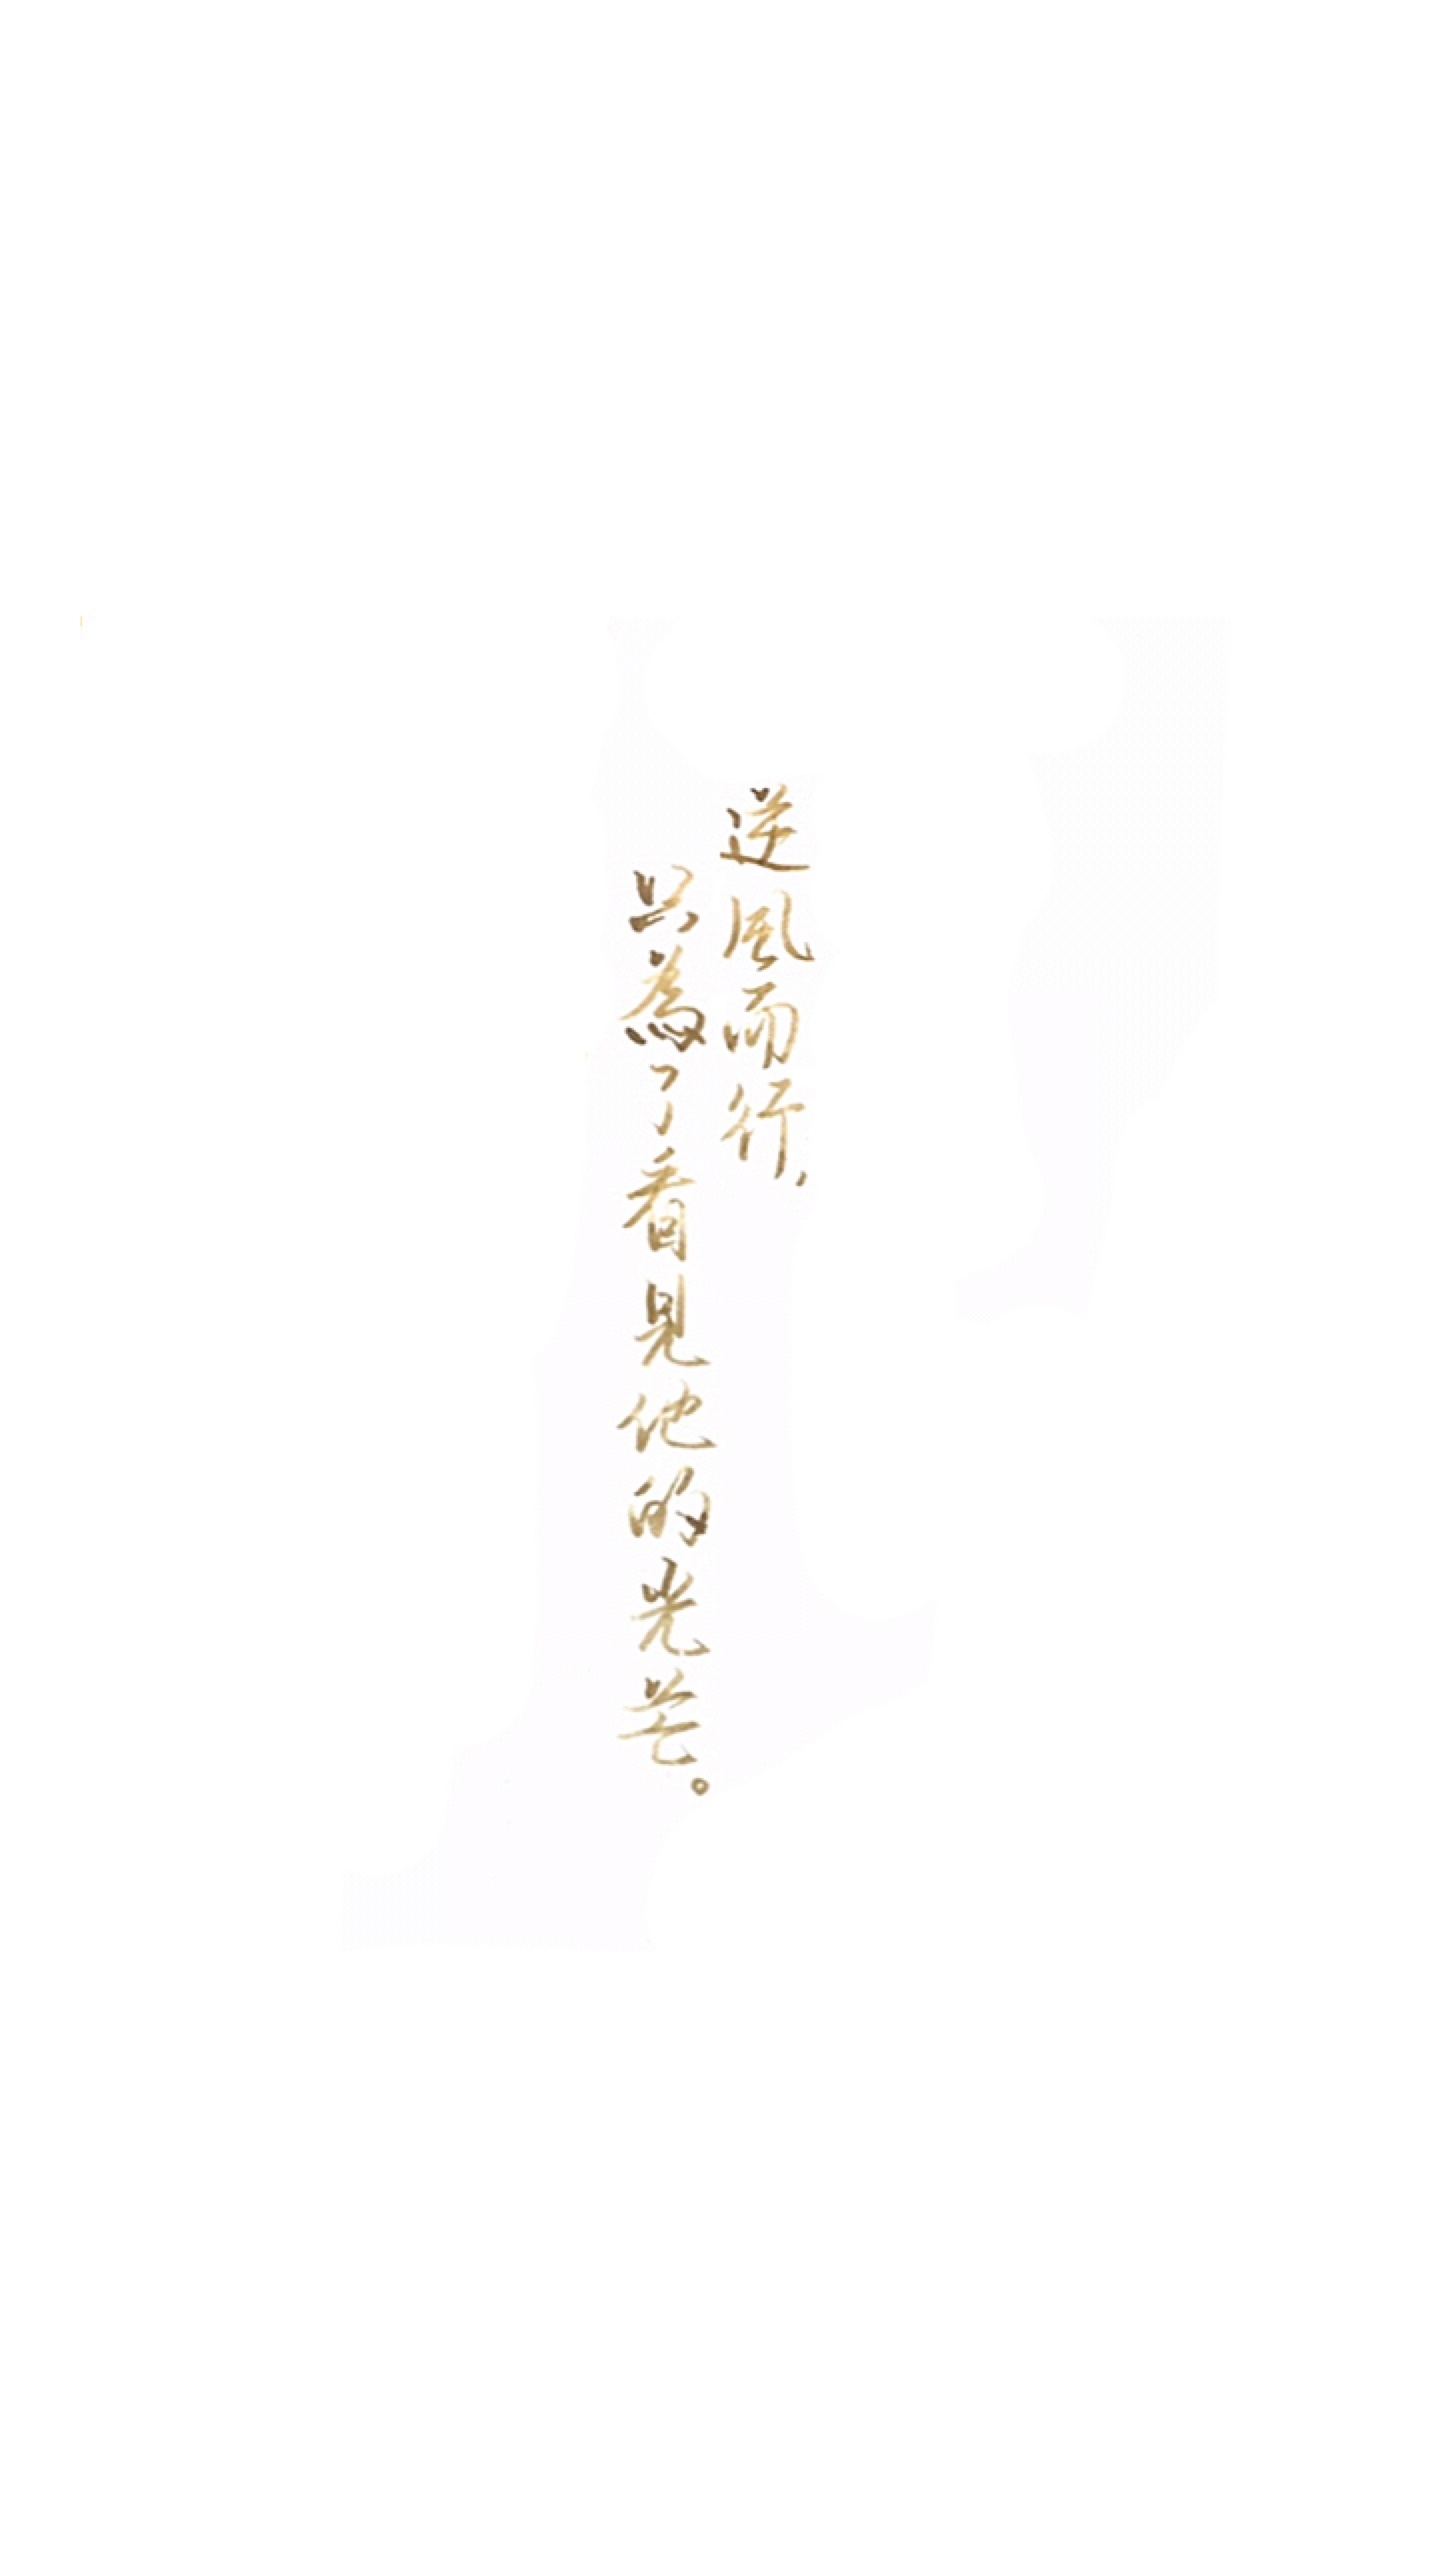 逆風而行，
只為了看見他的光芒。